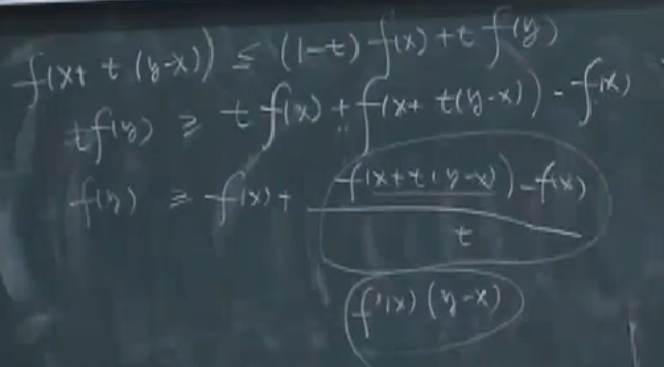 f(x+t(y-x)) ≤ (1-t)f(x)+t f(y)
tf(y) ≥ t f(x)+f(x+t(y-x))-f(x)
f(y) ≥ f(x)+ (f(x+t(y-x))-f(x))/t
f'(x)(y-x)